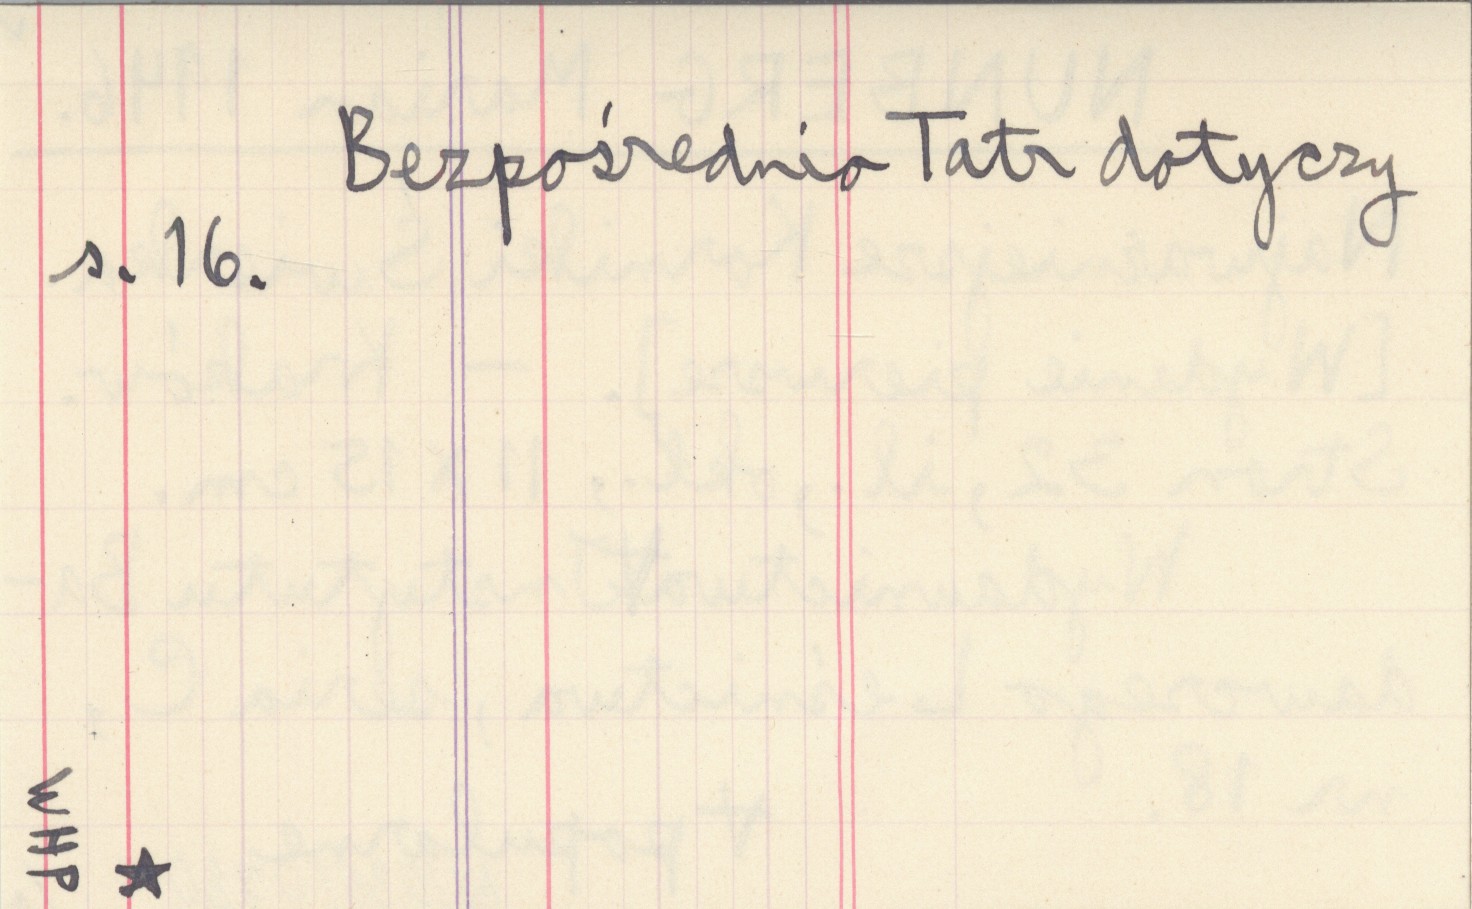 Bezpośrednio Tatr dotyczy
s. 16.
WHP ★